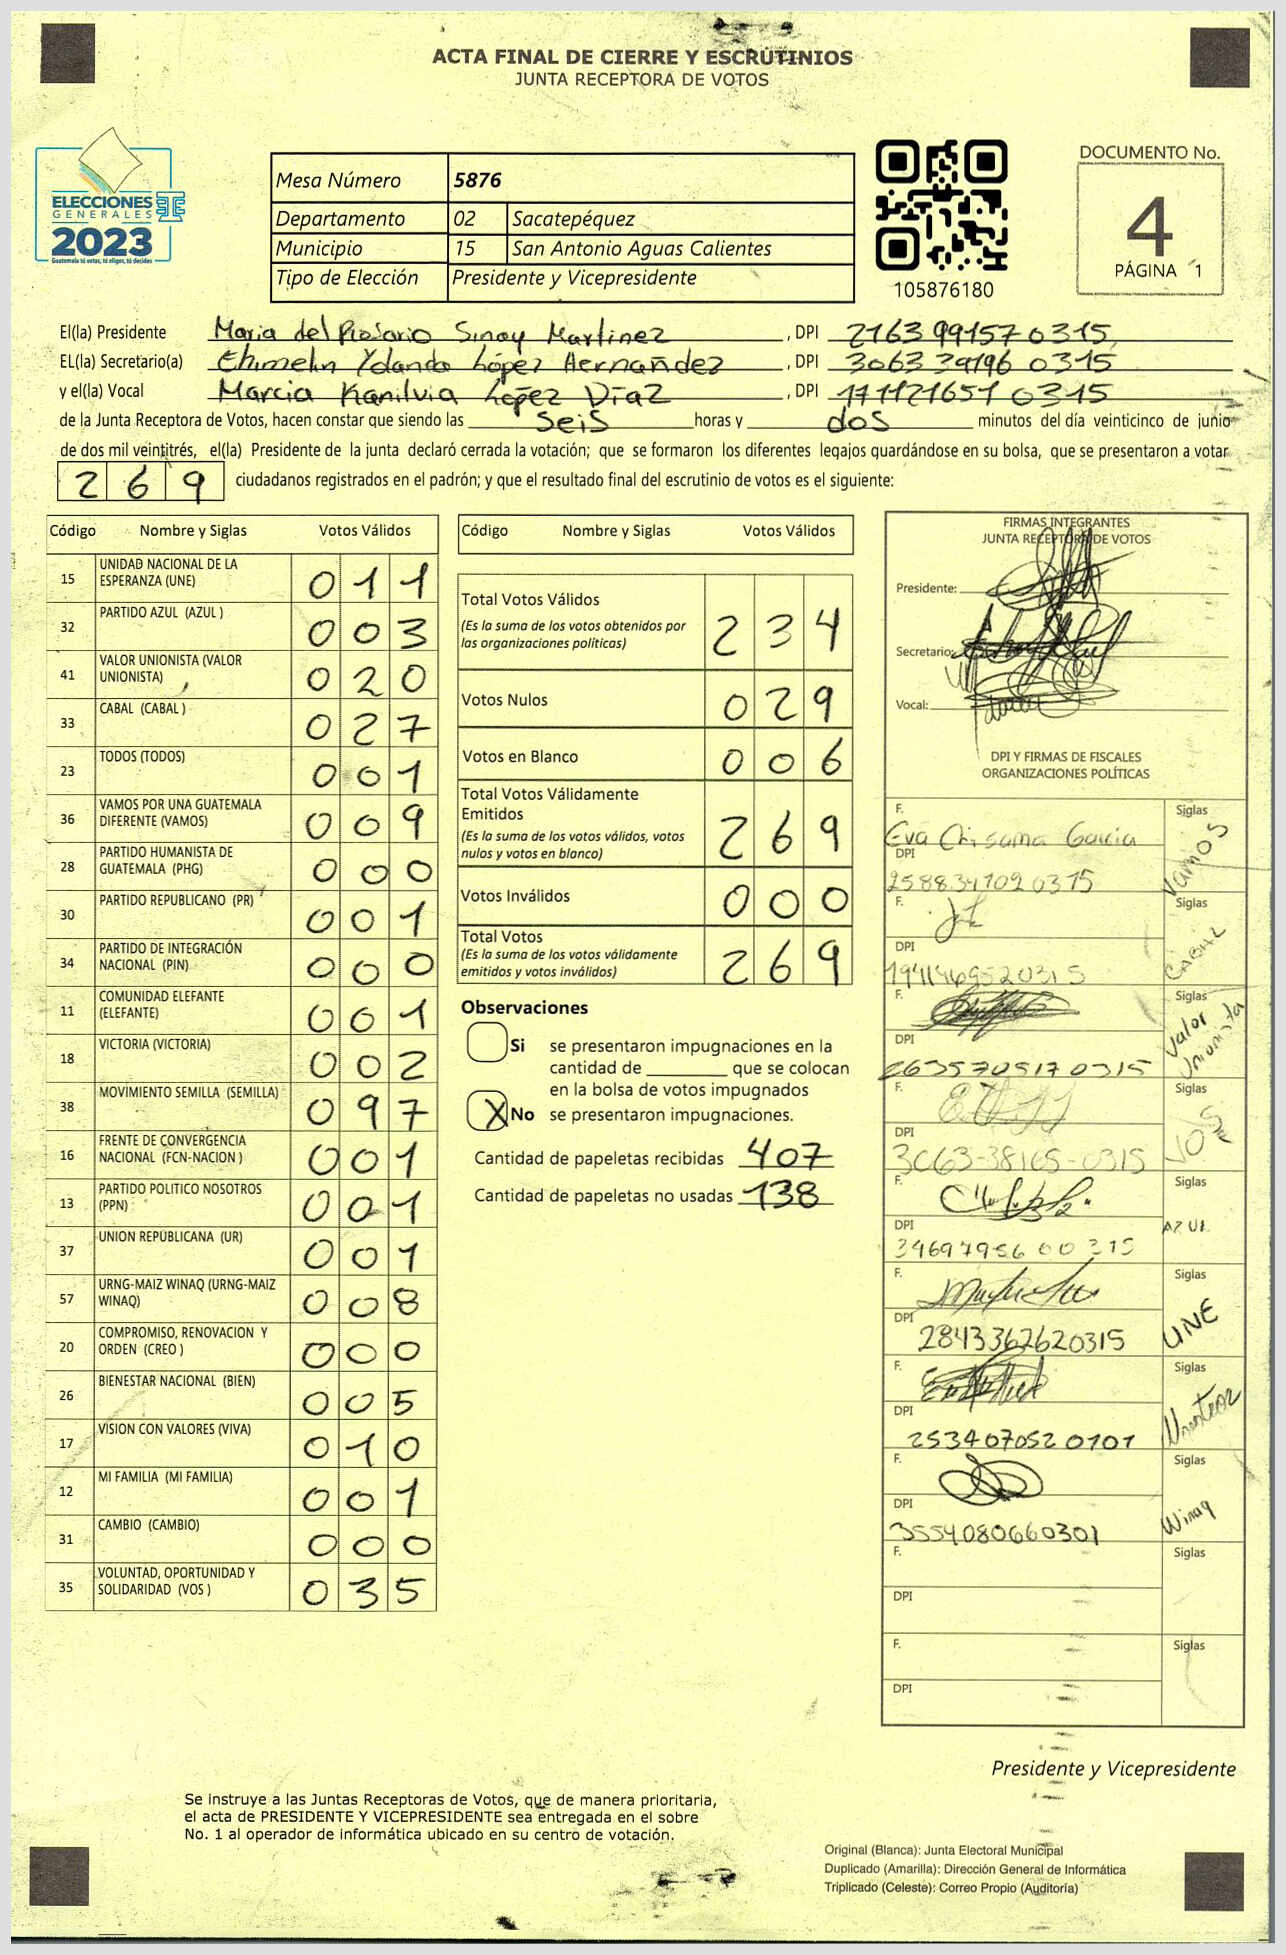 ACTA FINAL DE CIERRE Y ESCRUTINIOS
JUNTA RECEPTORA DE VOTOS
ELECCIONES
GENERALES
2023
Guatemala tú votas, tú eliges, tú decides
Mesa Número 5876
Departamento 02 Sacatepéquez
Municipio 15 San Antonio Aguas Calientes
Tipo de Elección Presidente y Vicepresidente
105876180
DOCUMENTO No.
4
PÁGINA 1
El(la) Presidente Maria del Rosario Sinay Martinez, DPI 2163 99157 0315
EL(la) Secretario(a) Ehimelin Yolanda López Hernández, DPI 3063 39196 0315
y el(la) Vocal Marcia Kanilvia López Díaz, DPI 171121651 0315
de la Junta Receptora de Votos, hacen constar que siendo las seis horas y dos minutos del día veinticinco de junio
de dos mil veintitrés, el(la) Presidente de la junta declaró cerrada la votación; que se formaron los diferentes legajos guardándose en su bolsa, que se presentaron a votar
269 ciudadanos registrados en el padrón; y que el resultado final del escrutinio de votos es el siguiente:
Código Nombre y Siglas Votos Válidos
15 UNIDAD NACIONAL DE LA ESPERANZA (UNE) 011
32 PARTIDO AZUL (AZUL ) 003
41 VALOR UNIONISTA (VALOR UNIONISTA) 020
33 CABAL (CABAL ) 027
23 TODOS (TODOS) 001
36 VAMOS POR UNA GUATEMALA DIFERENTE (VAMOS) 009
28 PARTIDO HUMANISTA DE GUATEMALA (PHG) 000
30 PARTIDO REPUBLICANO (PR) 001
34 PARTIDO DE INTEGRACIÓN NACIONAL (PIN) 000
11 COMUNIDAD ELEFANTE (ELEFANTE) 001
18 VICTORIA (VICTORIA) 002
38 MOVIMIENTO SEMILLA (SEMILLA) 097
16 FRENTE DE CONVERGENCIA NACIONAL (FCN-NACION ) 001
13 PARTIDO POLITICO NOSOTROS (PPN) 001
37 UNION REPUBLICANA (UR) 001
57 URNG-MAIZ WINAQ (URNG-MAIZ WINAQ) 008
20 COMPROMISO, RENOVACION Y ORDEN (CREO ) 000
26 BIENESTAR NACIONAL (BIEN) 005
17 VISION CON VALORES (VIVA) 010
12 MI FAMILIA (MI FAMILIA) 001
31 CAMBIO (CAMBIO) 000
35 VOLUNTAD, OPORTUNIDAD Y SOLIDARIDAD (VOS ) 035
Código Nombre y Siglas Votos Válidos
Total Votos Válidos 234
(Es la suma de los votos obtenidos por
las organizaciones políticas)
Votos Nulos 029
Votos en Blanco 006
Total Votos Válidamente
Emitidos 269
(Es la suma de los votos válidos, votos
nulos y votos en blanco)
Votos Inválidos 000
Total Votos 269
(Es la suma de los votos válidamente
emitidos y votos inválidos)
Observaciones
Si se presentaron impugnaciones en la
cantidad de ________ que se colocan
en la bolsa de votos impugnados
X No se presentaron impugnaciones.
Cantidad de papeletas recibidas 407
Cantidad de papeletas no usadas 138
FIRMAS INTEGRANTES
JUNTA RECEPTORA DE VOTOS
Presidente:
Secretario:
Vocal:
DPI Y FIRMAS DE FISCALES
ORGANIZACIONES POLÍTICAS
F. Eva Garcia Siglas Vamos
DPI 2588341020315
F. Siglas CABAL
DPI 1941469520315
F. Siglas Valor Unionista
DPI 2635705170315
F. Siglas VOS
DPI 3063-38165-0315
F. Siglas AZUL
DPI 3469795600315
F. Siglas UNE
DPI 2843362620315
F. Siglas
DPI 2534070520101
F. Siglas Winaq
DPI 3554080660301
F. Siglas
DPI
F. Siglas
DPI
Presidente y Vicepresidente
Se instruye a las Juntas Receptoras de Votos, que de manera prioritaria,
el acta de PRESIDENTE Y VICEPRESIDENTE sea entregada en el sobre
No. 1 al operador de informática ubicado en su centro de votación.
Original (Blanca): Junta Electoral Municipal
Duplicado (Amarilla): Dirección General de Informática
Triplicado (Celeste): Correo Propio (Auditoría)